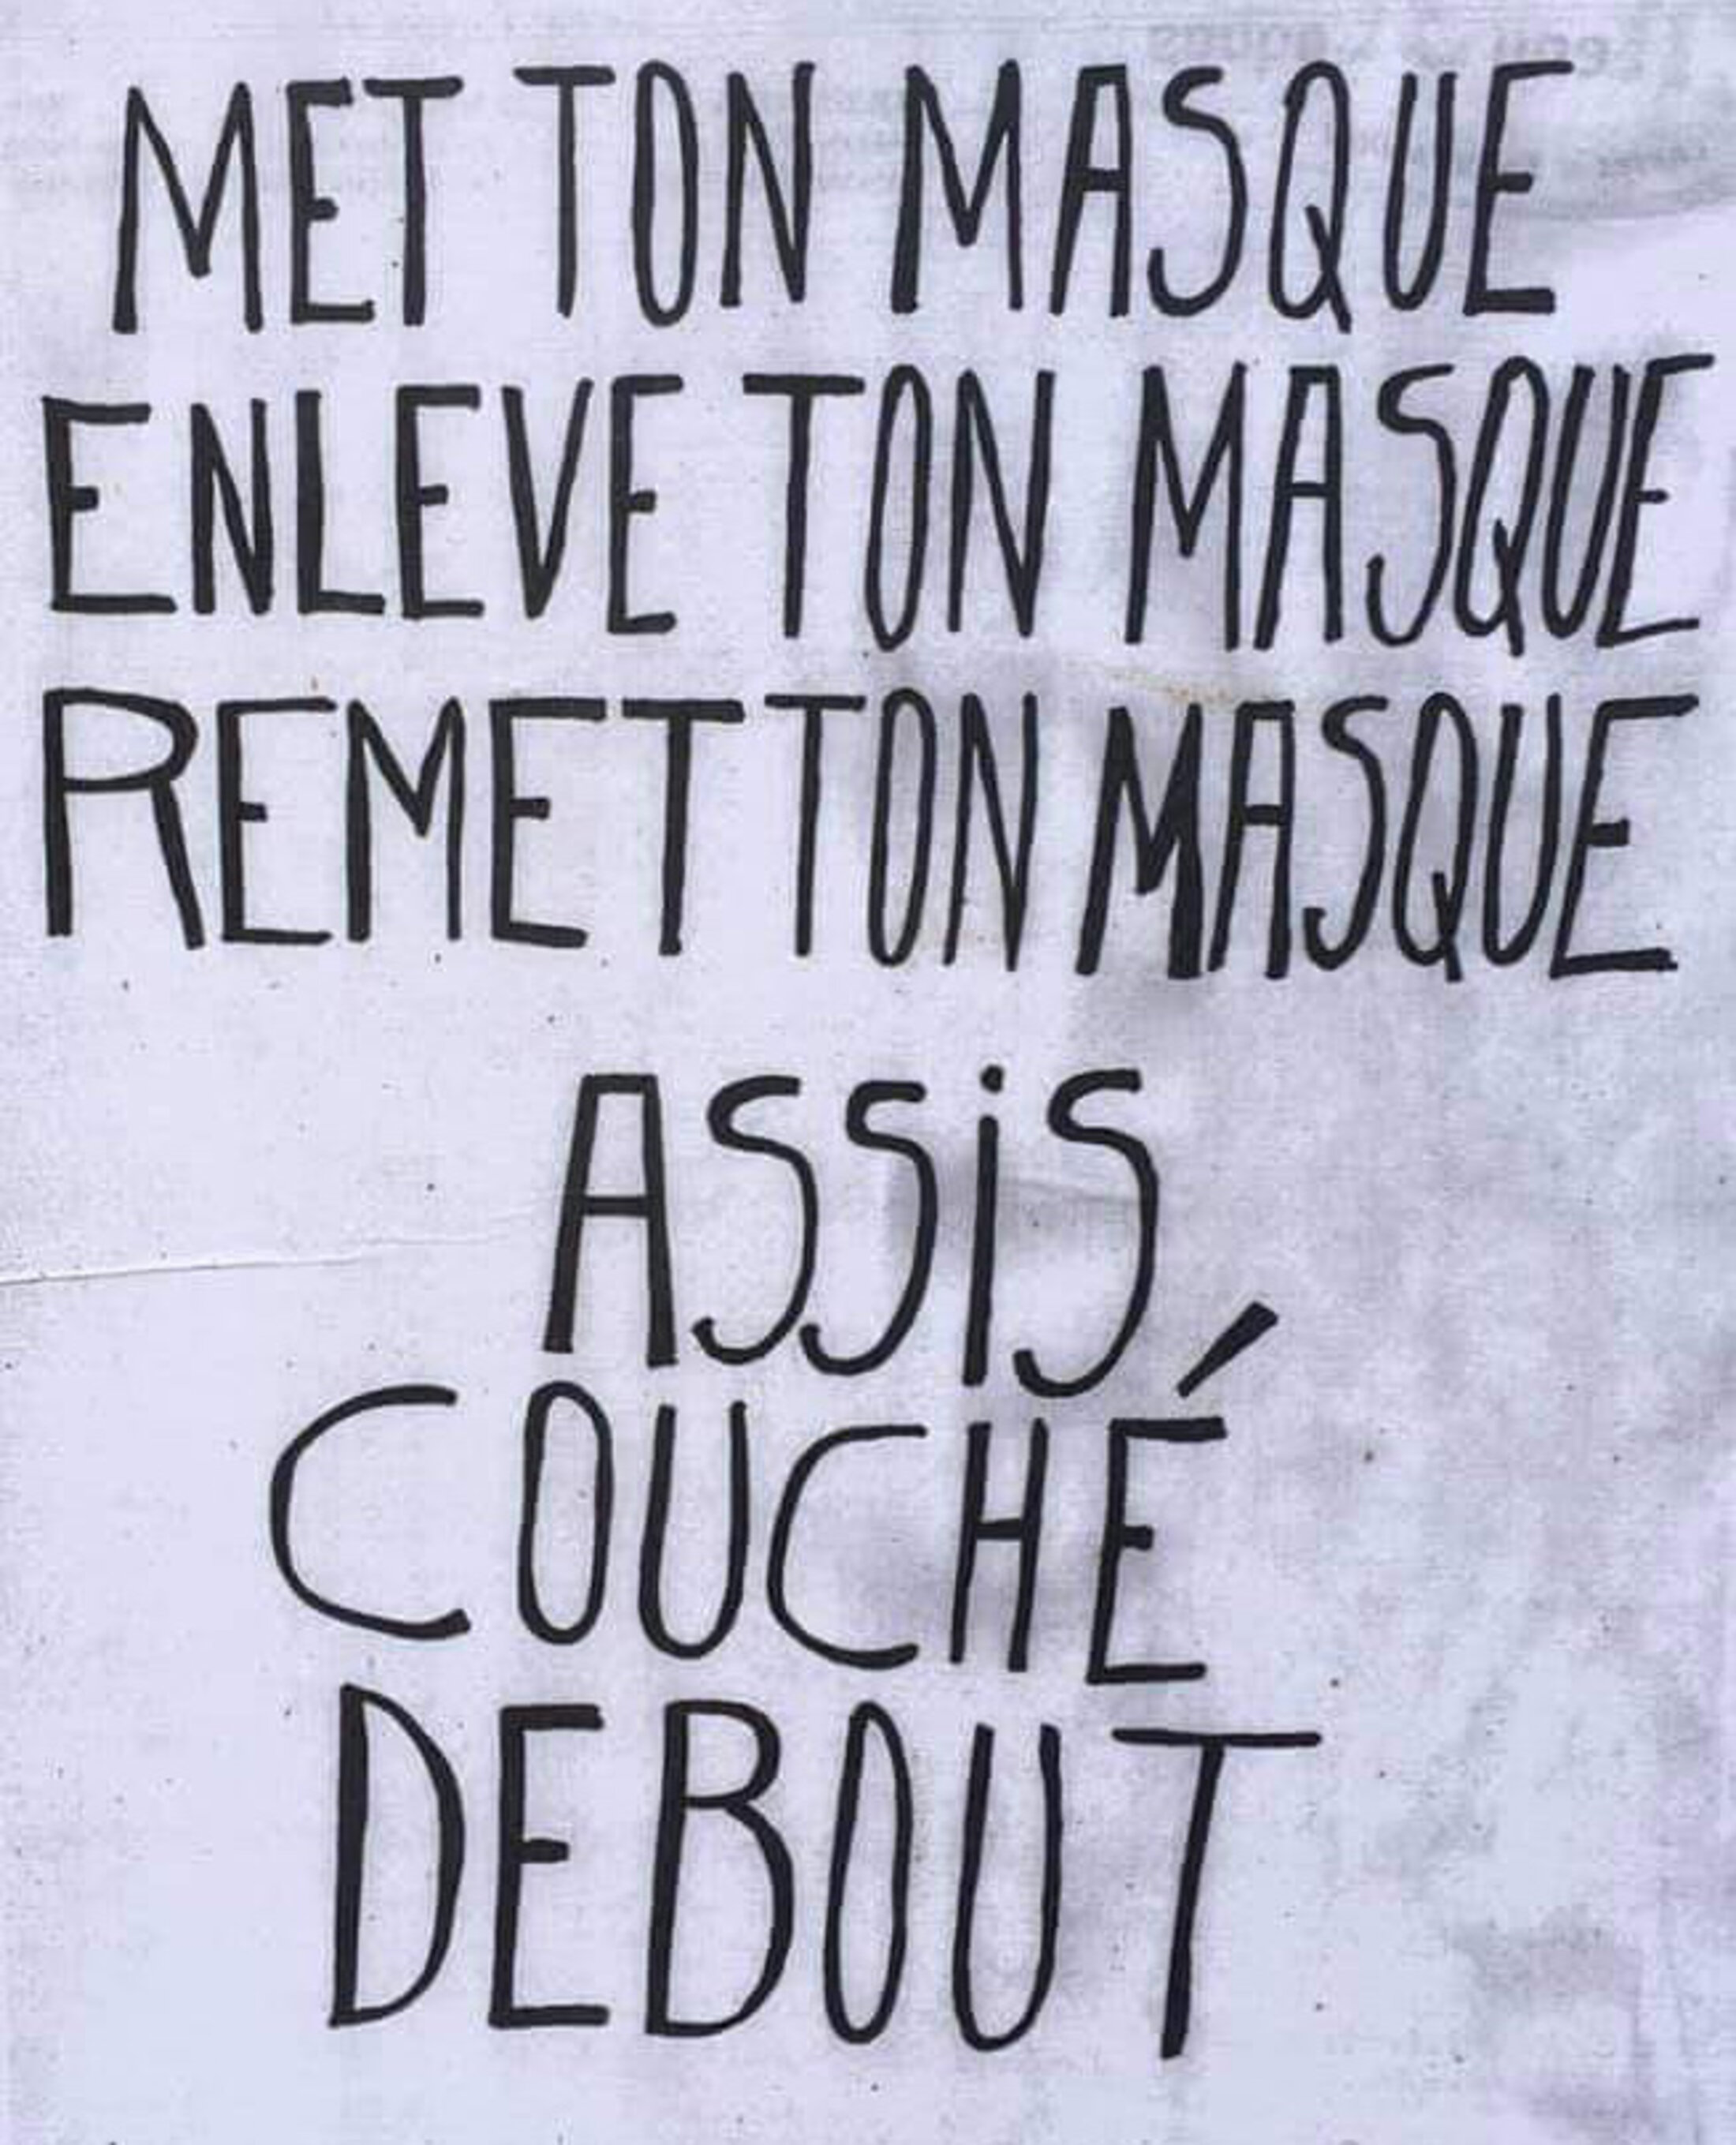 MET TON MASQUE
ENLEVE TON MASQUE
REMET TON MASQUE
ASSiS
COUCHÉ
DEBOUT